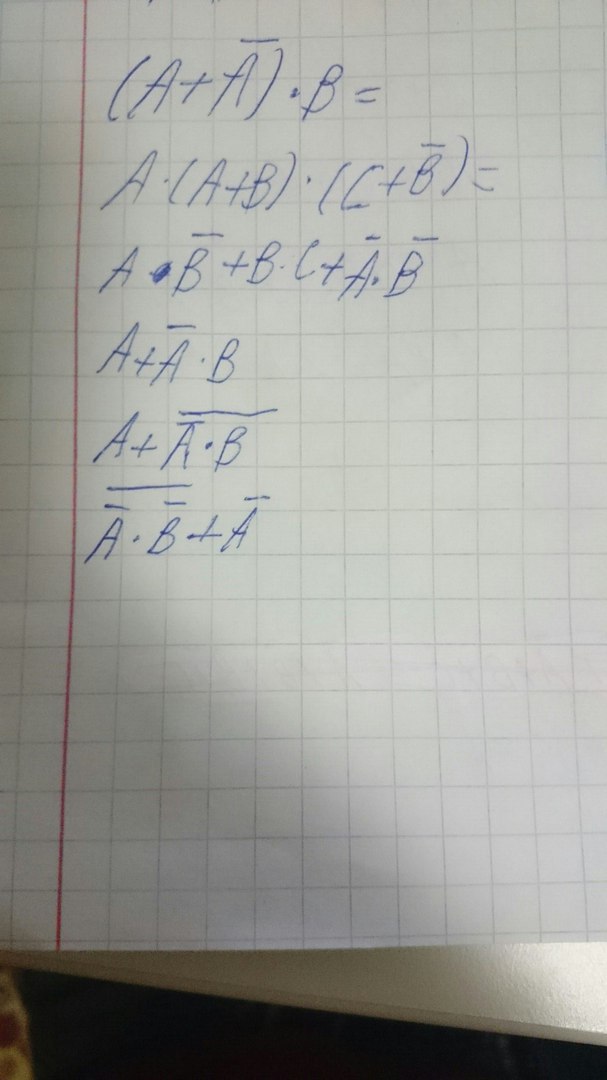 (A+A̅)·B=
A·(A+B)·(C+B̅)=
A·B̅+B·C+A̅·B̅
A+A̅·B
A+\overline{A̅·B}
\overline{A̅·B̅}+A̅